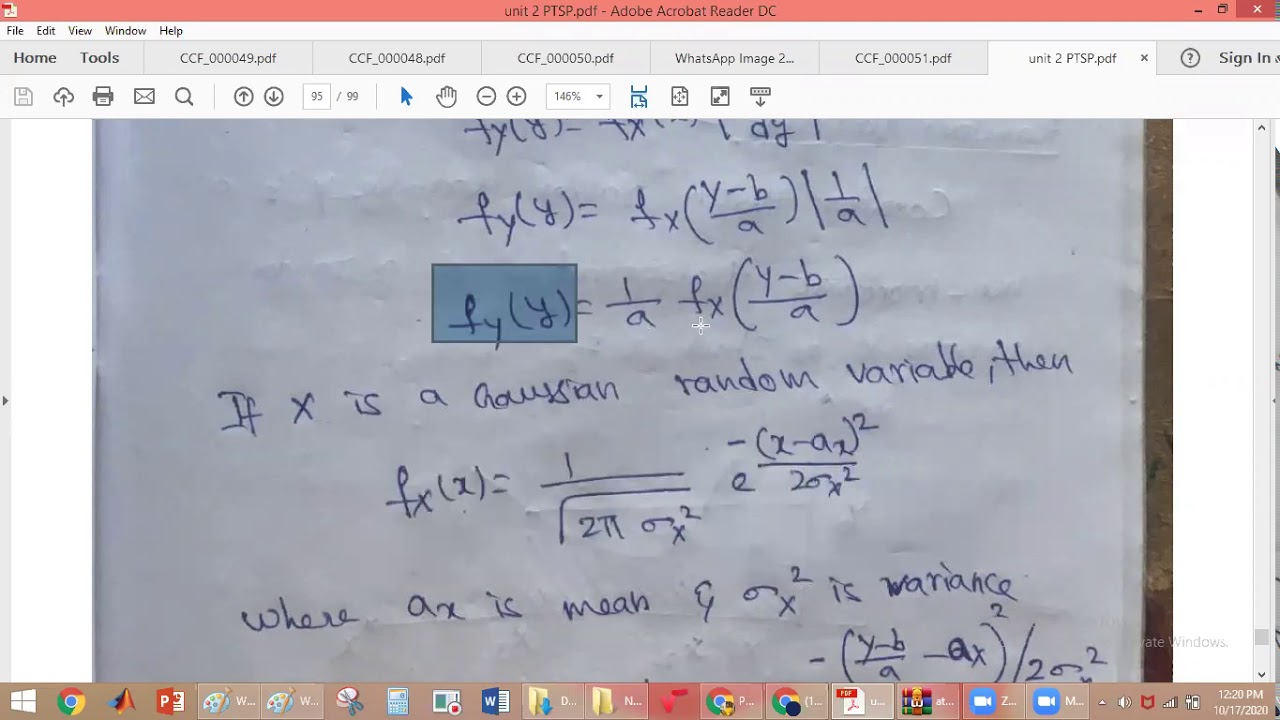 unit 2 PTSP.pdf - Adobe Acrobat Reader DC
File Edit View Window Help
Home Tools CCF_000049.pdf CCF_000048.pdf CCF_000050.pdf WhatsApp Image 2... CCF_000051.pdf unit 2 PTSP.pdf × ? Sign In
95 / 99 146%
f_Y(y) = f_X( | dy |
f_Y(y) = f_X((y-b)/a) |1/a|
f_Y(y) = 1/a f_X((y-b)/a)
If X is a Gaussian random variable, then
f_X(x) = 1/√(2π σ_X^2) e^(-(x-ax)^2/2σ_X^2)
where ax is mean & σ_X^2 is variance
-((y-b)/a - ax)^2/2σ_x^2
ate Windows.
W... W... D... N... (1... u... at... Z... M... 12:20 PM
10/17/2020